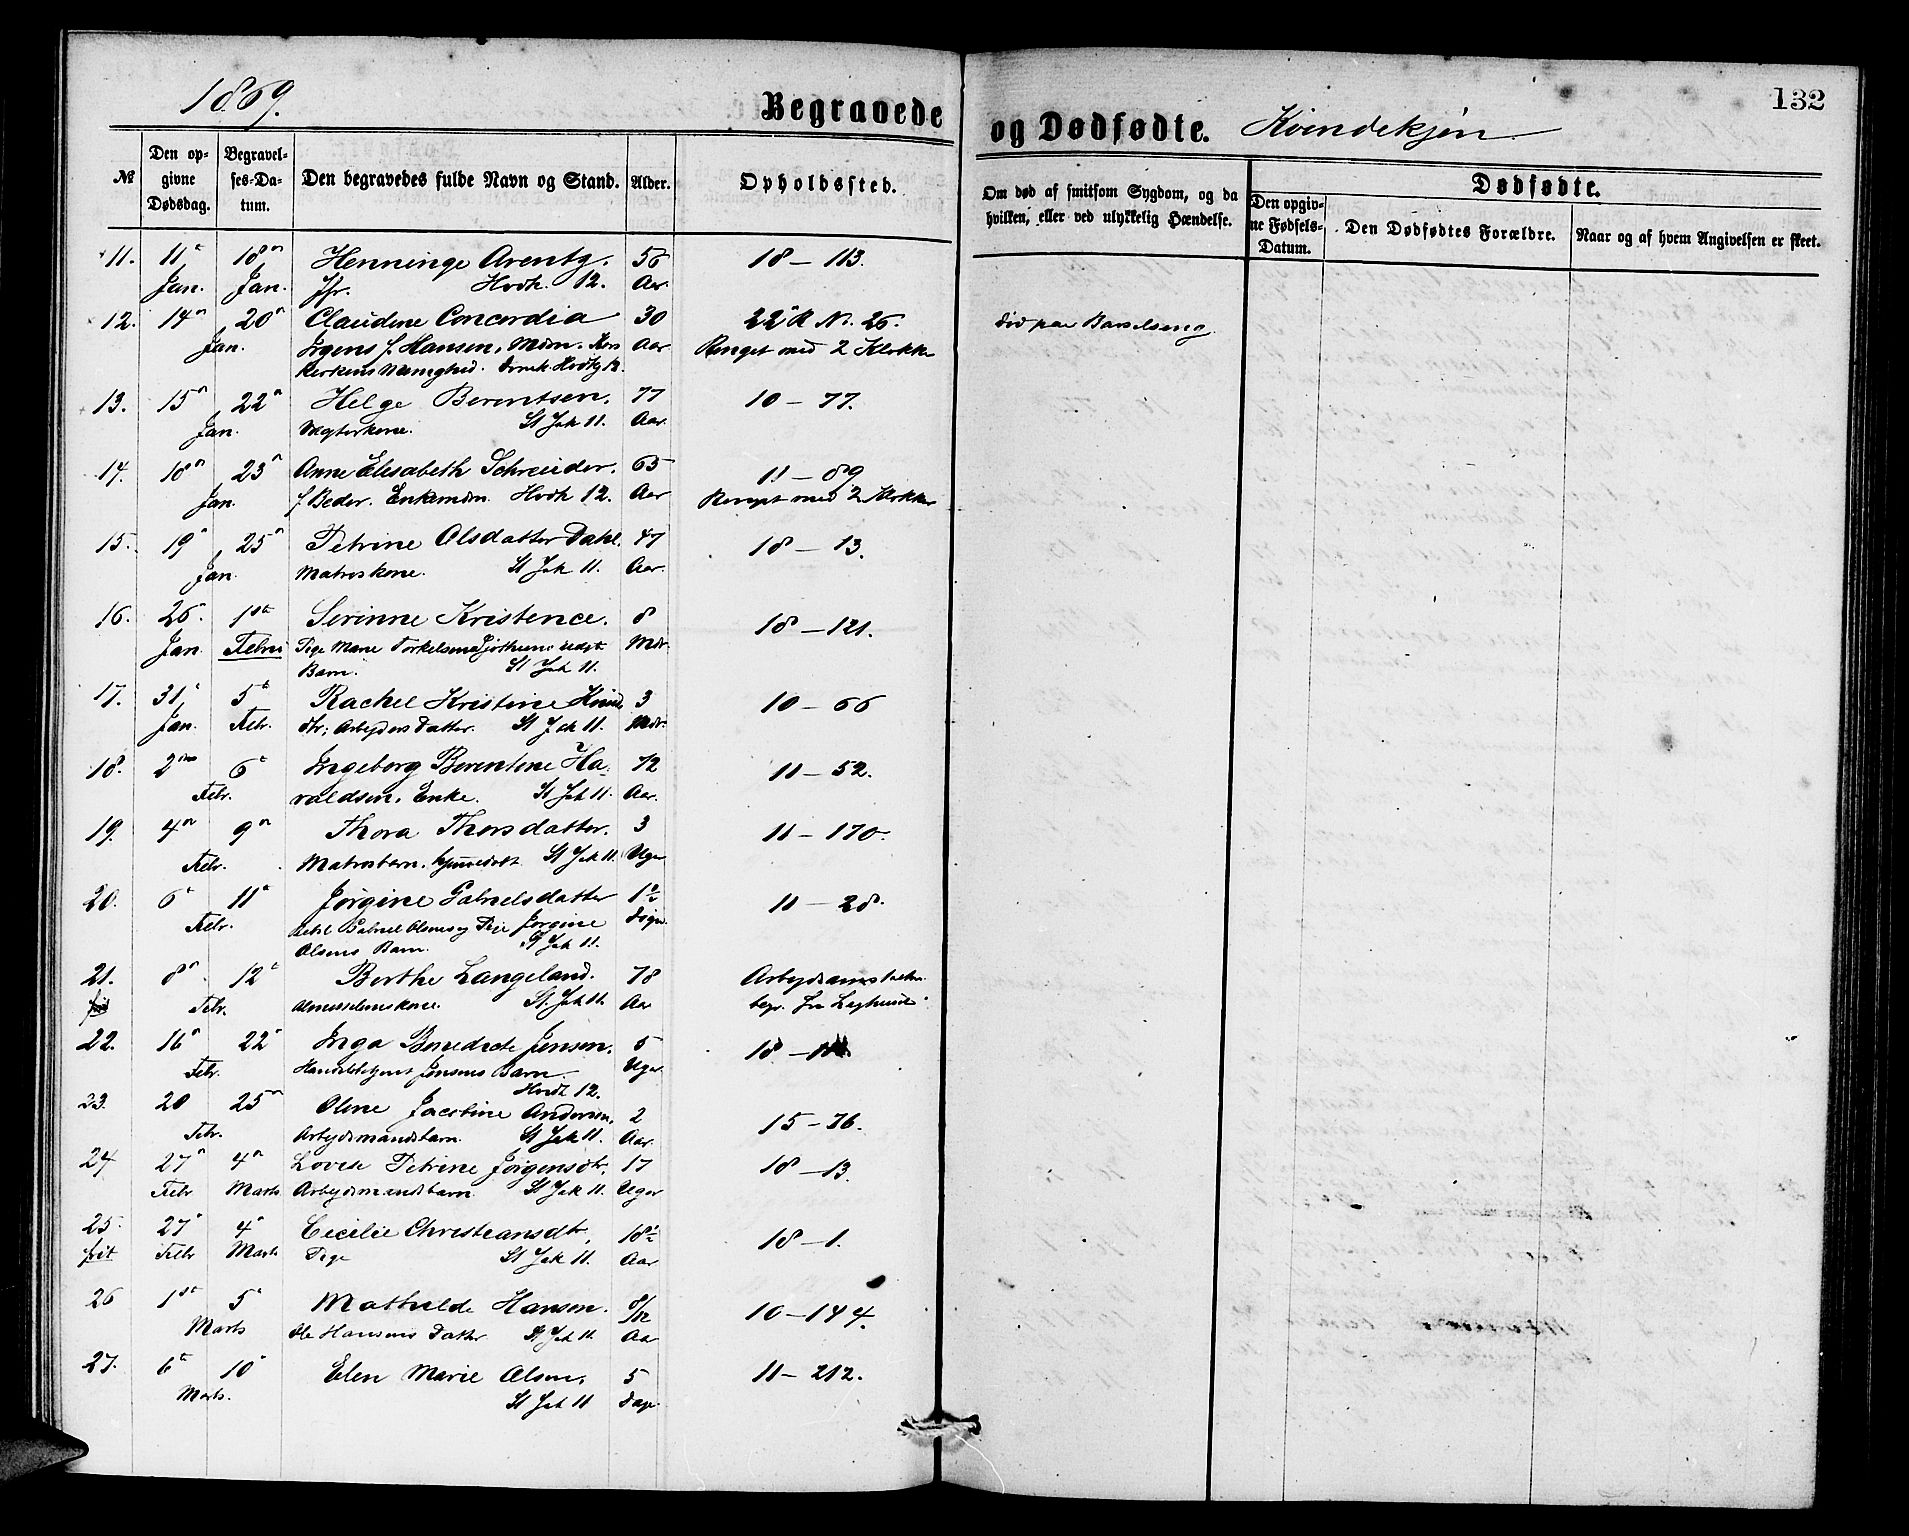 1869.
Begravede
og Dødfødte. Kvindekjøn
132
№
Den opgivne Dødsdag.
Begravelses-Datum.
Den begravedes fulde Navn og Stand.
Alder.
Opholdssted.
Om død af smitsom Sygdom, og da hvilken, eller ved ulykkelig Hændelse.
Dødfødte.
Den opgivne Fødsels-Datum.
Den Dødfødtes Forældre.
Naar og af hvem Angivelsen er skeet.
11. 11te 18de Henninge Arentz. 56 18 – 113.
Jan. Jan. Jfr. Hvdk. 12. Aar.
12. 14de 20de Claudine Concordia 30 22 R No. 26. Død paa Barselseng
Jan. Irgens f. Hansen, Mdm. Aar Ringet med 2 Klokker
13. 15de 22de Helge Berentsen. 77 10 – 77.
Jan. Vægterkone. St Jak 11. Aar.
14. 18de 23de Anne Elisabeth Schreuder. 65 11 – 89
Jan. f. Beder. Enkemdm. Hvdk 12. Aar Ringet med 2 Klokker
15. 19de 25de Petrine Olsdatter Dahl. 47 18 – 13.
Jan. Matroskone. St Jak 11. Aar.
16. 26. 1ste Serinne Kristence. 8 18 – 121.
Jan. Febru Pige Marie Torkelsens uægt Mdr.
Barn. St Jak 11.
17. 31te 5te Rachel Kristine 3 10 – 66
Jan. Febr. dtr; Arbeiders Datter. St Jak 11. Mdr.
18. 2den 6te Ingeborg Berentine Ha- 72 11 – 52.
Febr. valdsen, Enke. St Jak 11. Aar.
19. 4de 9de Thora Thorsdatter. 3 11 – 170.
Febr. Matrosbarn. hjemmedøbt St Jak 11. Uger
20. 6te 11te Jørgine Gabrielsdatter 1½ 11 – 28.
Febr. Gabriel Olsens og Pige Jørgine Døgn
Olsens Barn. St Jak 11.
21. 8de 12te Berthe Langeland. 78
Febr. Almisselemskone. St. Jak 11. Aar begr. fra Lighuset
22. 16de 22de Inga Benedicte Jensen. 5 18 –
Febr. Jensens Barn. Uger
Hvdk 12.
23. 20 25de Oline Jacobine Andersen, 2 15 – 76.
Febr. Arbeidsmandsbarn. St Jak 11. Aar.
24 27de 4de Lovise Petrine Jørgensdtr, 17 18 – 13.
Febr Marts Arbeidsmandsbarn. St Jak 11. Uger
25. 27de 4de Cecilie Christiansdtr, 18½ 18 – 1.
frit Febr Marts Pige St Jak 11. Aar
26 1ste 5te Mathilde Hansen. 8/12 10 – 144.
Marts Ole Hansens Datter St Jak 11. Aar
27. 6te 10de Elen Marie Olsen. 5 11 – 212.
Marts. St Jak 11 Dage